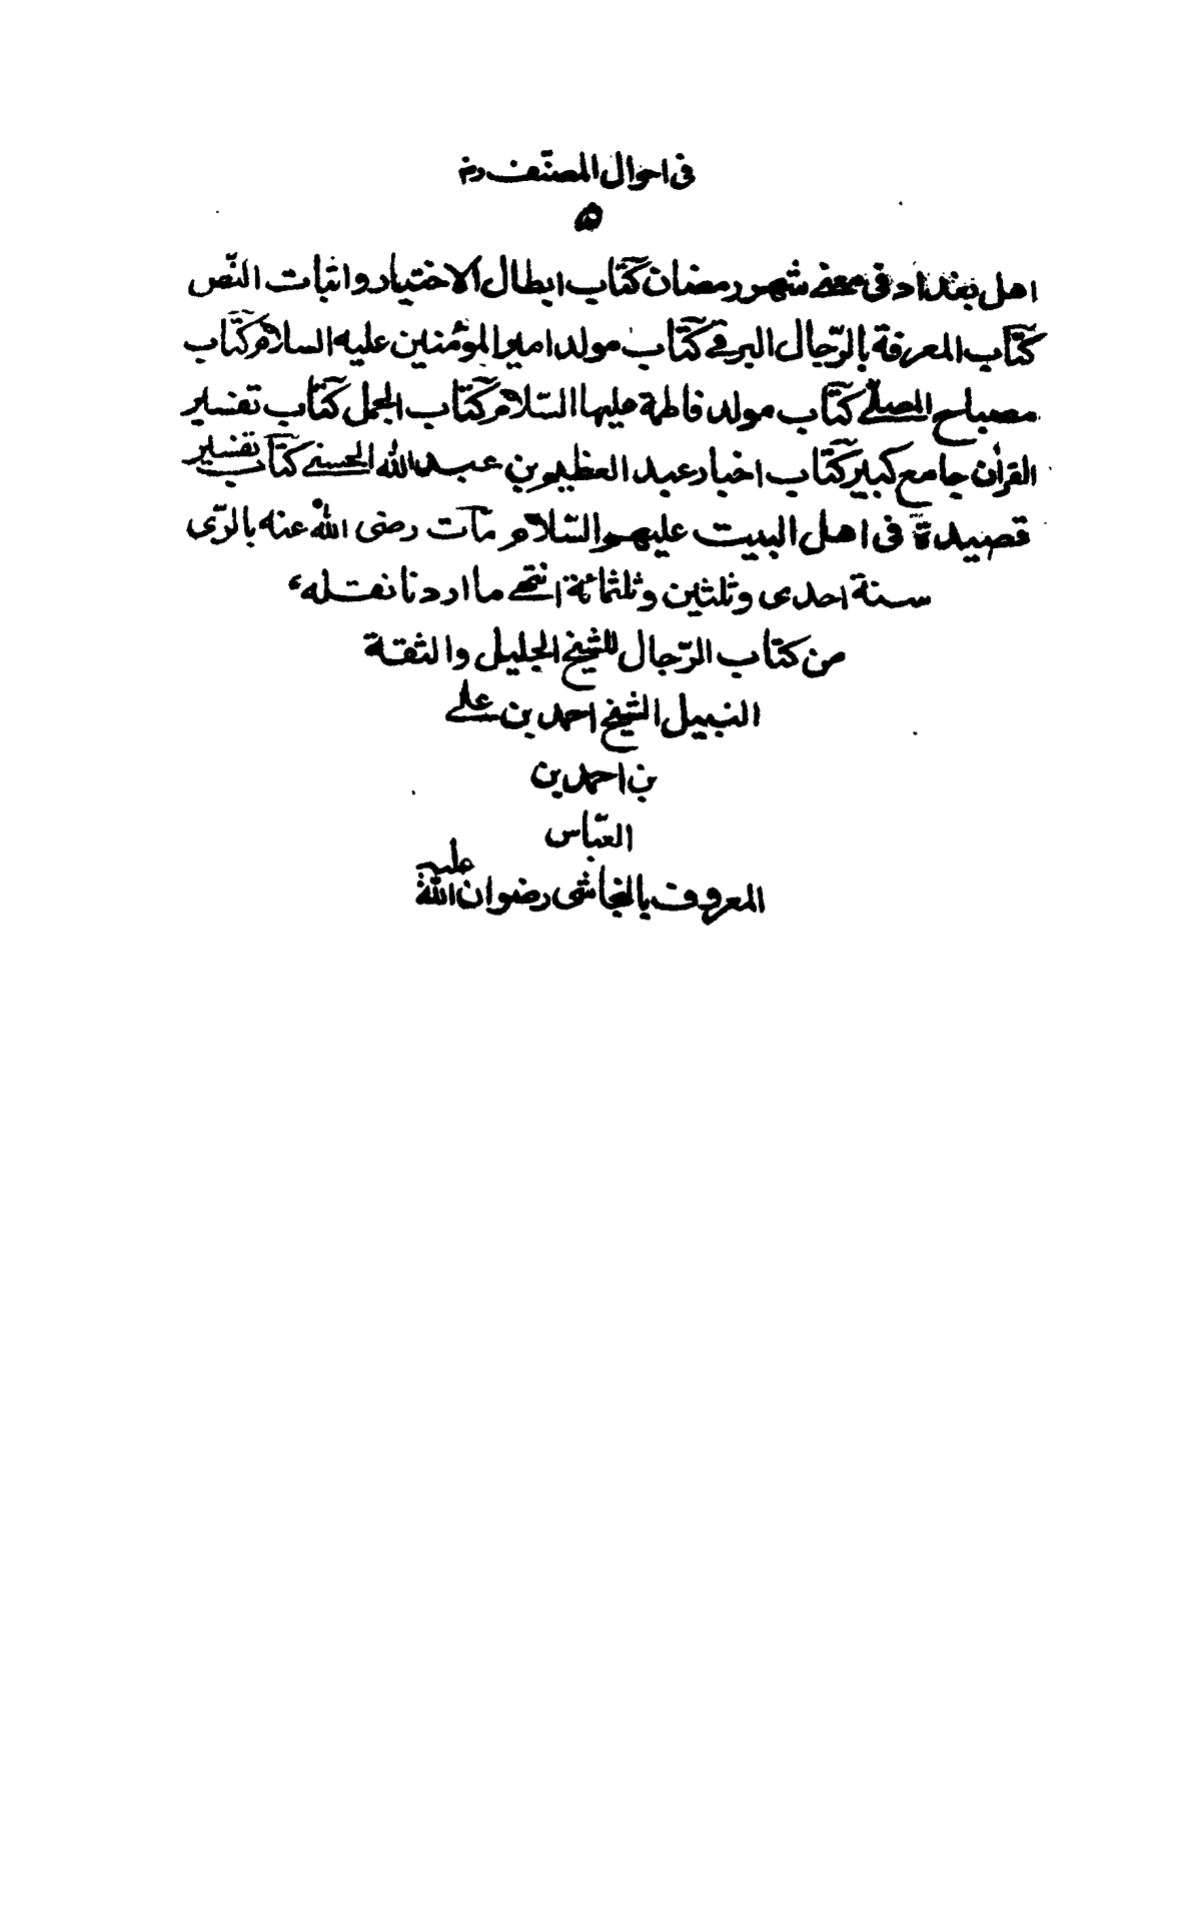 فى احوال المصنّف ره
٥
اهل بغداد فى معنى شهر رمضان كتاب ابطال الاختيار واثبات النّص
كتاب المعرفة بالرّجال البرقى كتاب مولد امير المؤمنين عليه السلام كتاب
مصباح المصلّى كتاب مولد فاطمة عليها السّلام كتاب الجمل كتاب تفسير
القرآن جامع كبير كتاب اخبار عبد العظيم بن عبد الله الحسنى كتاب تفسير
قصيدة فى اهل البيت عليهم السّلام مات رضى الله عنه بالرّى
سنة احدى وثلثين وثلثمائة انتهى ما اردنا نقله
من كتاب الرّجال للشيخ الجليل والثقة
النبيل الشيخ احمد بن على
بن احمد بن
العبّاس
المعروف بالنجاشى رضوان الله عليه